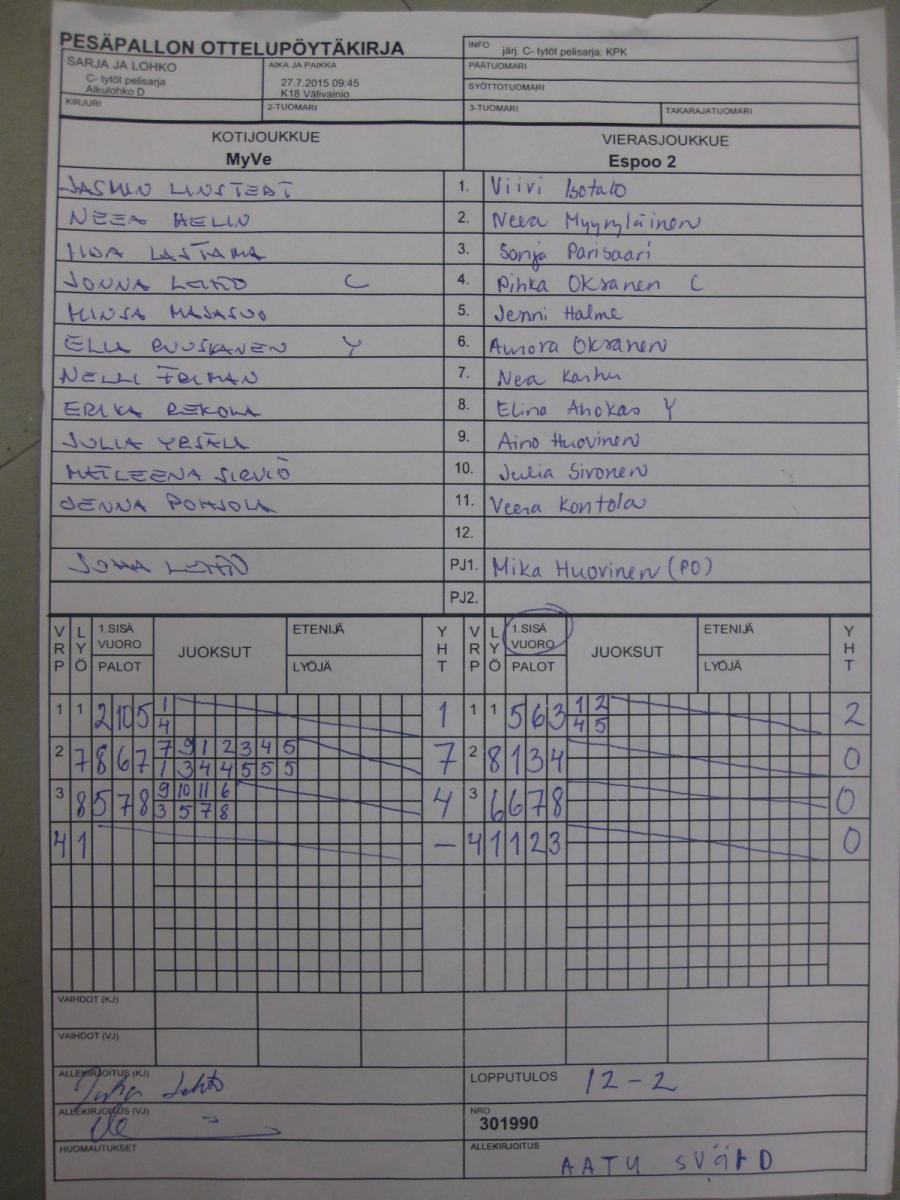 PESÄPALLON OTTELUPÖYTÄKIRJA
INFO järj. C- tytöt pelisarja: KPK
SARJA JA LOHKO
C- tytöt pelisarja
Alkulohko D
AIKA JA PAIKKA
27.7.2015 09:45
K18 Välivainio
PÄÄTUOMARI
SYÖTTÖTUOMARI
KIRJURI 2-TUOMARI 3-TUOMARI TAKARAJATUOMARI
KOTIJOUKKUE VIERASJOUKKUE
MyVe Espoo 2
JASMIN LINSTEDT 1. Viivi Isotalo
NEEA HELIN 2. Neea Myyryläinen
IIDA LASTAMA 3. Sonja Parisaari
JONNA LEHTO C 4. Pihka Oksanen C
MINSA MAJASUO 5. Jenni Halme
ELLI RUUSKANEN Y 6. Aurora Oksanen
NELLI FRIMAN 7. Nea Karhu
ERIKA REKOLA 8. Elina Ahokas Y
JULIA YRJÄLÄ 9. Aino Huovinen
MATLEENA SIRVIÖ 10. Julia Sivonen
JENNA POHJOLA 11. Veera Kontola
12.
JUHA LEHTO PJ1. Mika Huovinen (PO)
PJ2.
VRP LYÖ 1.SISÄ VUORO PALOT JUOKSUT ETENIJÄ LYÖJÄ YHT VRP LYÖ 1.SISÄ VUORO PALOT JUOKSUT ETENIJÄ LYÖJÄ YHT
1 1 2 10 5 1 1 1 1 5 6 3 1 2 2
4 4 5
2 7 8 6 7 7 9 1 2 3 4 5 7 2 8 1 3 4 0
1 3 4 4 5 5 5
3 8 5 7 8 9 10 11 6 4 3 6 6 7 8 0
3 5 7 8
4 1 – 4 1 1 2 3 0
VAIHDOT (KJ)
VAIHDOT (VJ)
ALLEKIRJOITUS (KJ) Juha Lehto LOPPUTULOS 12-2
ALLEKIRJOITUS (VJ) NRO
301990
HUOMAUTUKSET ALLEKIRJOITUS
AATU SVÄRD